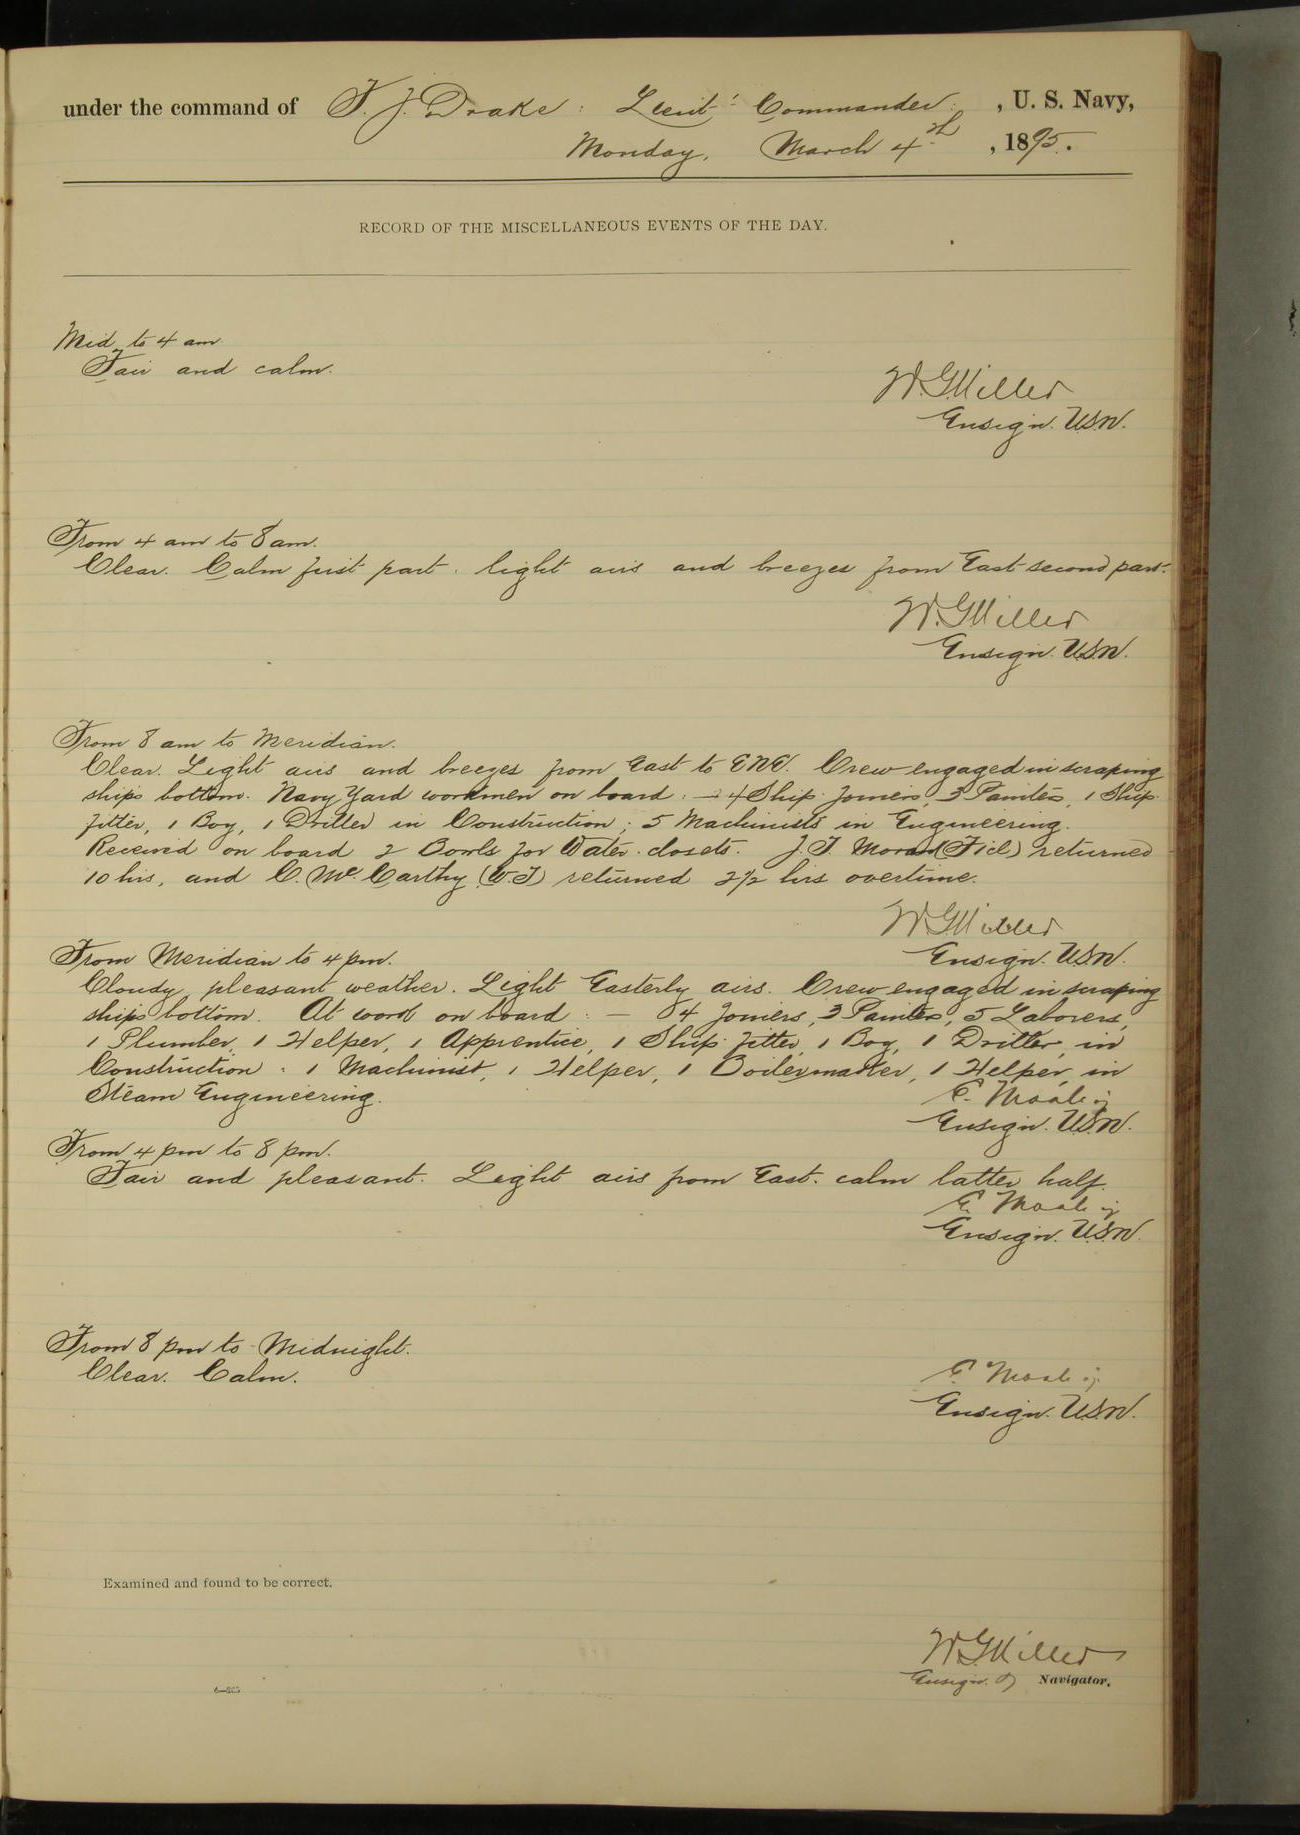 under the command of F. J. Drake : Lieut! Commander. , U. S. Navy,
Monday, March 4th , 1895.
RECORD OF THE MISCELLANEOUS EVENTS OF THE DAY.
Mid. to 4 am
Fair and calm.
W. G. Miller
Ensign. U.S.N.
From 4 am to 8 am.
Clear. Calm first part. light airs and breezes from East second part.
W. G. Miller
Ensign. U.S.N.
From 8 am to Meridian.
Clear. Light airs and breezes from East to ENE. Crew engaged in scraping
ships bottom. Navy Yard workmen on board :- 4 Ship Joiners, 3 Painters, 1 Ship
fitter, 1 Boy, 1 Driller in Construction ; 5 Machinists in Engineering.
Received on board 2 Bowls for Water-closets. J. J. Moran returned
10 hrs, and C. McCarthy (W.T) returned 2 1/2 hrs overtime.
W. G. Miller
Ensign. U.S.N.
From Meridian to 4 pm.
Cloudy, pleasant weather. Light Easterly airs. Crew engaged in scraping
ships bottom. At work on board :- 4 Joiners, 3 Painters, 5 Laborers,
1 Plumber, 1 Helper, 1 Apprentice, 1 Ship fitter, 1 Boy, 1 Driller, in
Construction : 1 Machinist, 1 Helper, 1 Boilermaker, 1 Helper, in
Steam Engineering.
E. Moale jr
Ensign. U.S.N.
From 4 pm to 8 pm.
Fair and pleasant. Light airs from East. calm latter half.
E. Moale jr
Ensign. U.S.N.
From 8 pm to Midnight.
Clear. Calm.
E. Moale jr.
Ensign. U.S.N.
Examined and found to be correct.
W. G. Miller
Ensign. & Navigator.